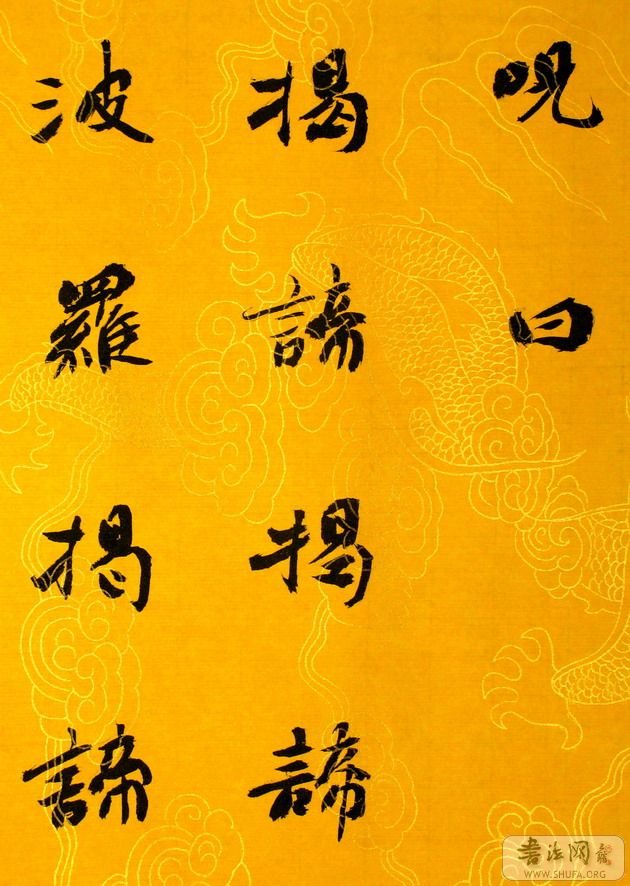 呪曰
揭諦揭諦
波羅揭諦
書法网
WWW.SHUFA.ORG